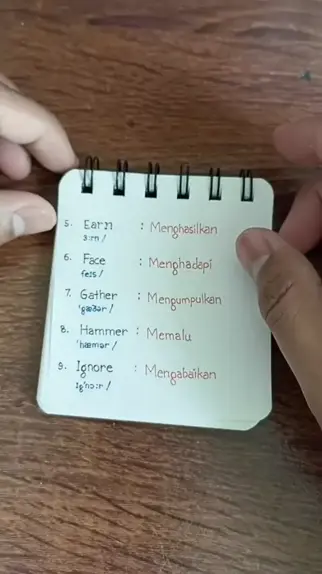 5. Earn : Menghasilkan
ɜːrn /
6. Face : Menghadapi
feɪs /
7. Gather : Mengumpulkan
'gæðər /
8. Hammer : Memalu
'hæmər /
9. Ignore : Mengabaikan
ɪg'nɔːr /